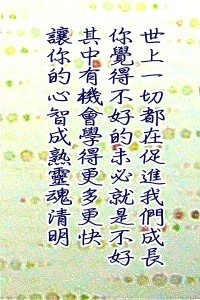 世上一切都在促進我們成長
你覺得不好的未必就是不好
其中有機會學得更多更快
讓你的心智成熟靈魂清明